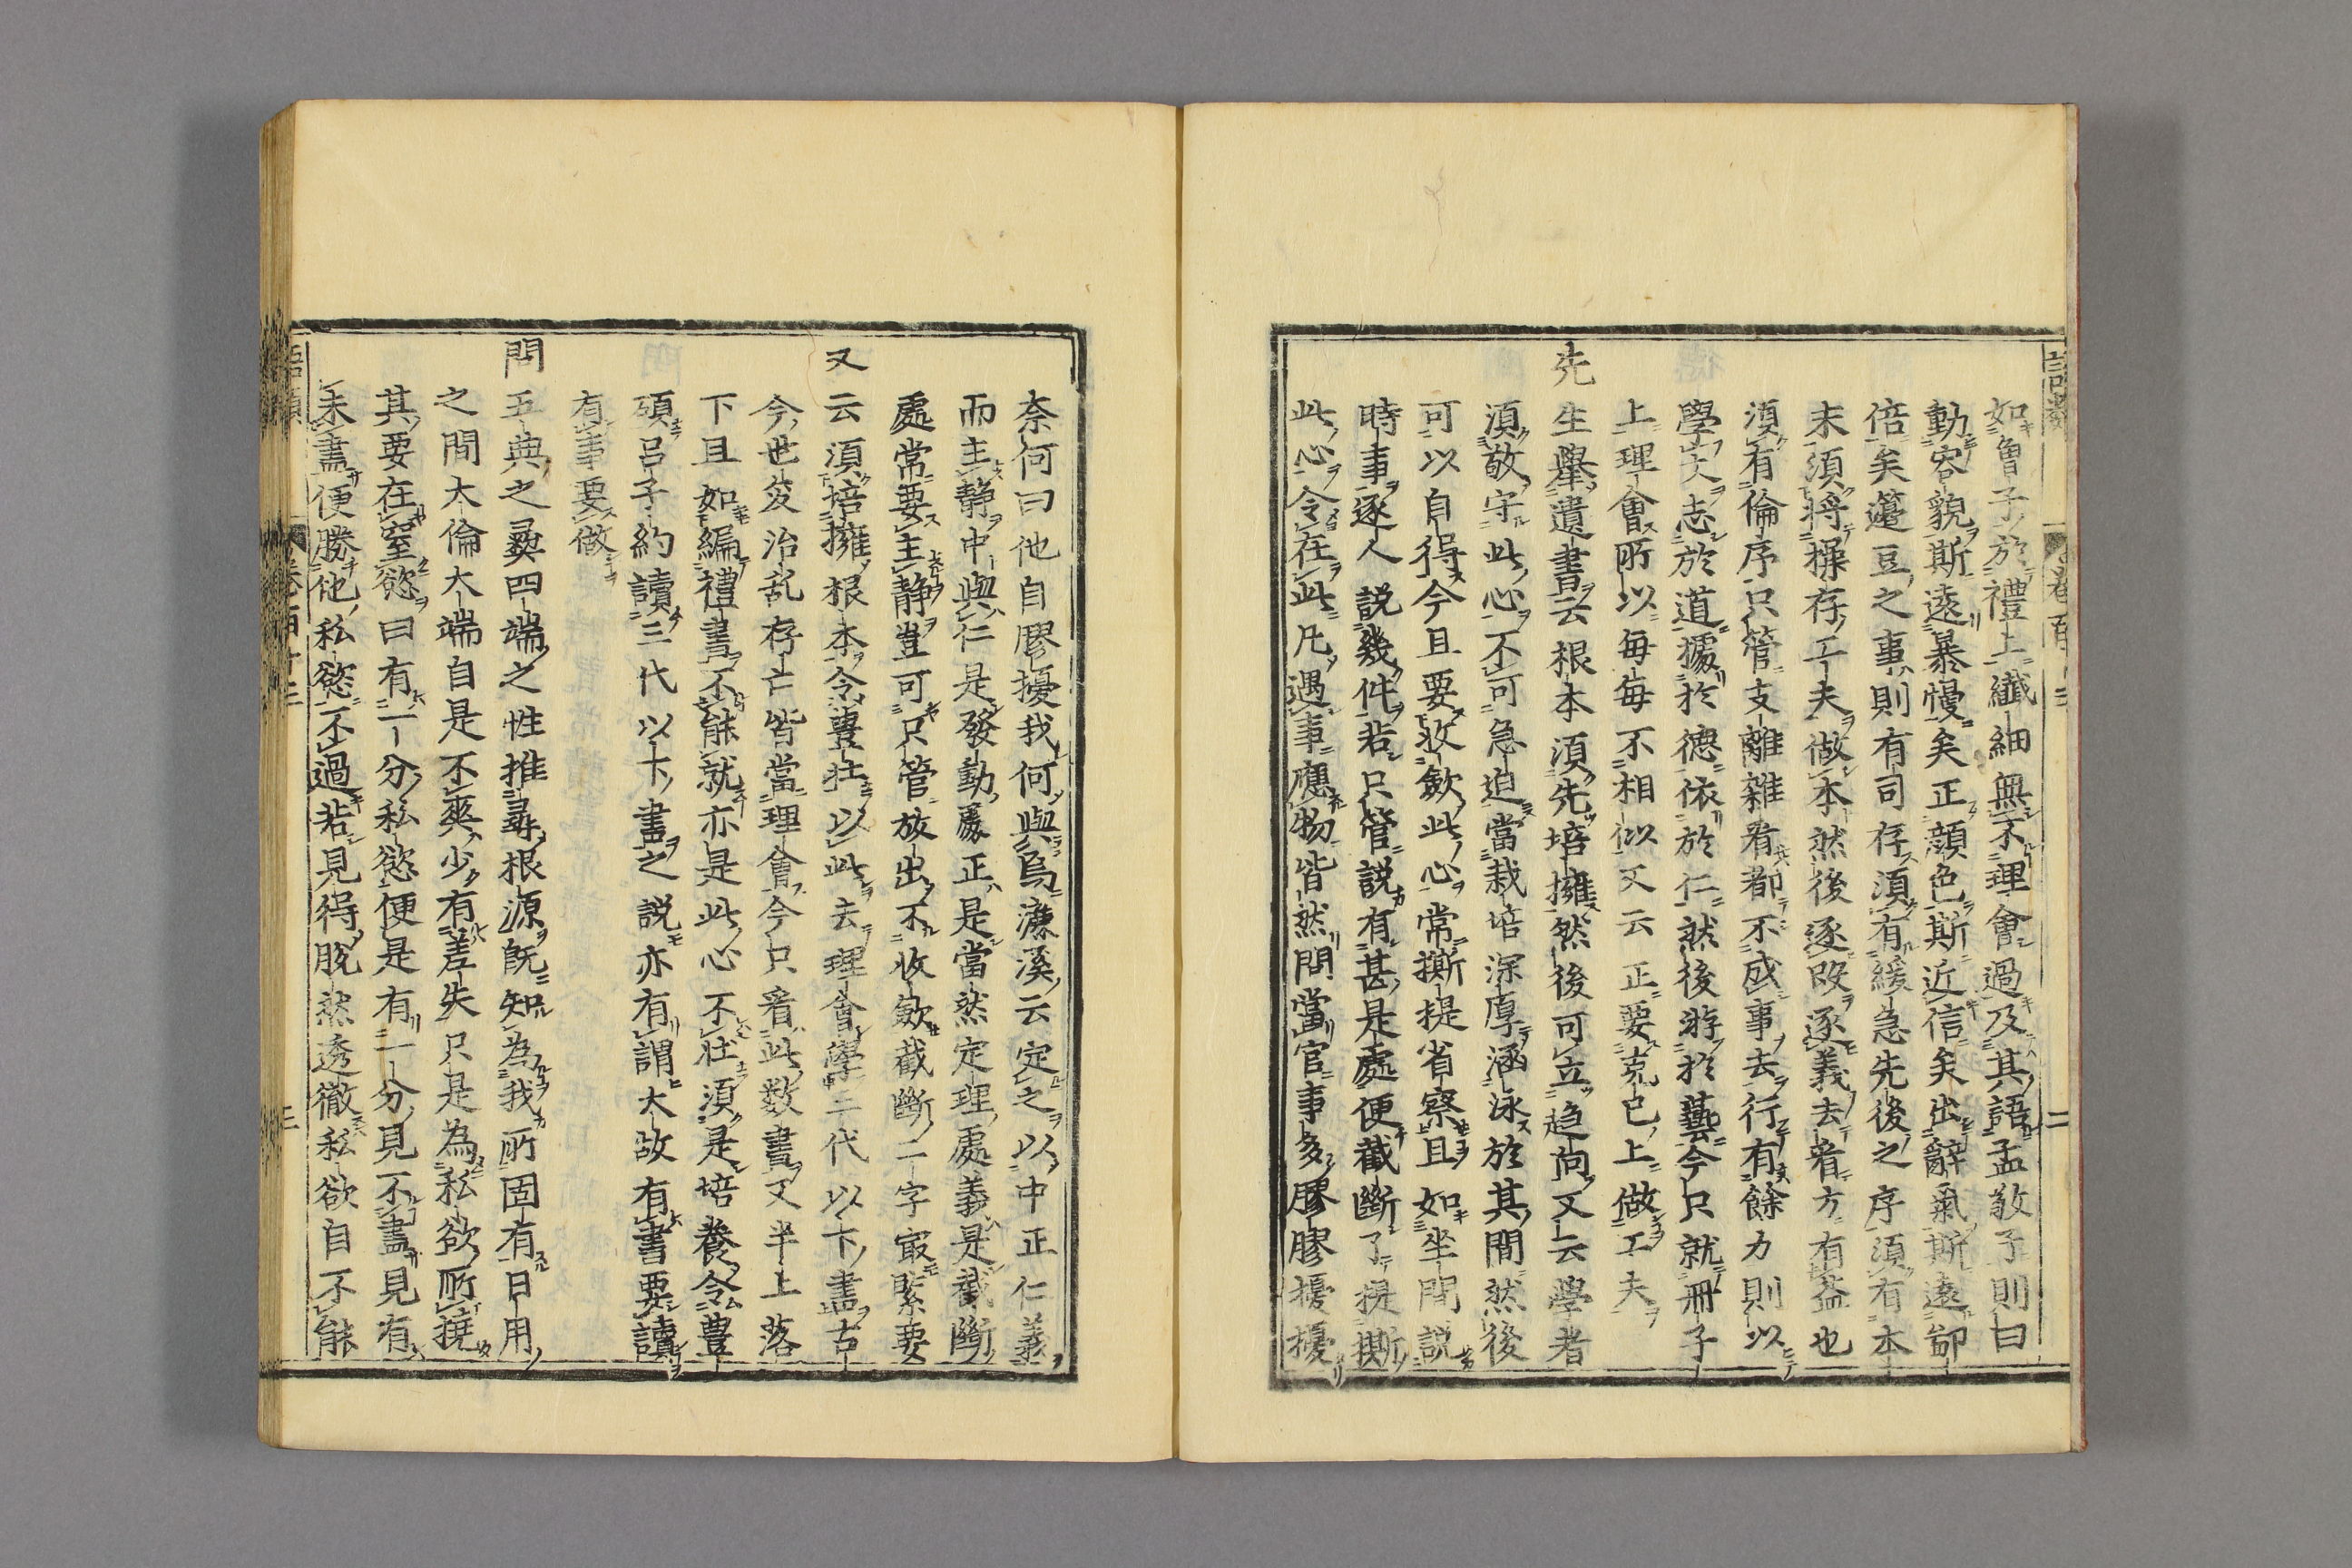 如曾子於禮上纖細無不理會過及其語孟敬子則曰
動容貌斯遠暴慢矣正顔色斯近信矣出辭氣斯遠鄙
倍矣籩豆之事則有司存須有緩急先後之序須有本
末須將操存工夫做本然後逐段逐義去看方有益也
須有倫序只管支離雜看都不成事去行有餘力則以
學文志於道據於德依於仁然後游於藝今只就冊子
上理會所以每每不相似又云正要克己上做工夫
先生舉遺書云根本須先培擁然後可立趋向又云學者
須敬守此心不可急迫當栽培深厚涵泳於其間然後
可以自得今且要收斂此心常撕提省察且如坐間説
時事逐人説幾件若只管説有甚是處便截斷了提撕
此心令在此凡遇事應物皆然問當官事多膠膠擾擾
奈何曰他自膠擾我何與焉濂溪云定之以中正仁義
而主靜中與仁是發動處正是當然定理處義是截斷
處常要主靜豈可只管放出不收斂截斷二字最緊要
又云須培擁根本令豊壮以此去理會學三代以下書古
今世変治乱存亡皆當理會今只看此数書又半上落
下且如編禮書不能就亦是此心不壮須是培養令豊
碩呂子約讀三代以下書之説亦有謂大故有書要讀
有事要做
問五典之彝四端之性推尋根源既知為我所固有日用
之間大倫大端自是不爽少有差失只是為私欲所撓
其要在窒慾曰有一分私慾便是有一分見不盡見有
未盡便勝他私慾不過若見得脱然透徹私欲自不能